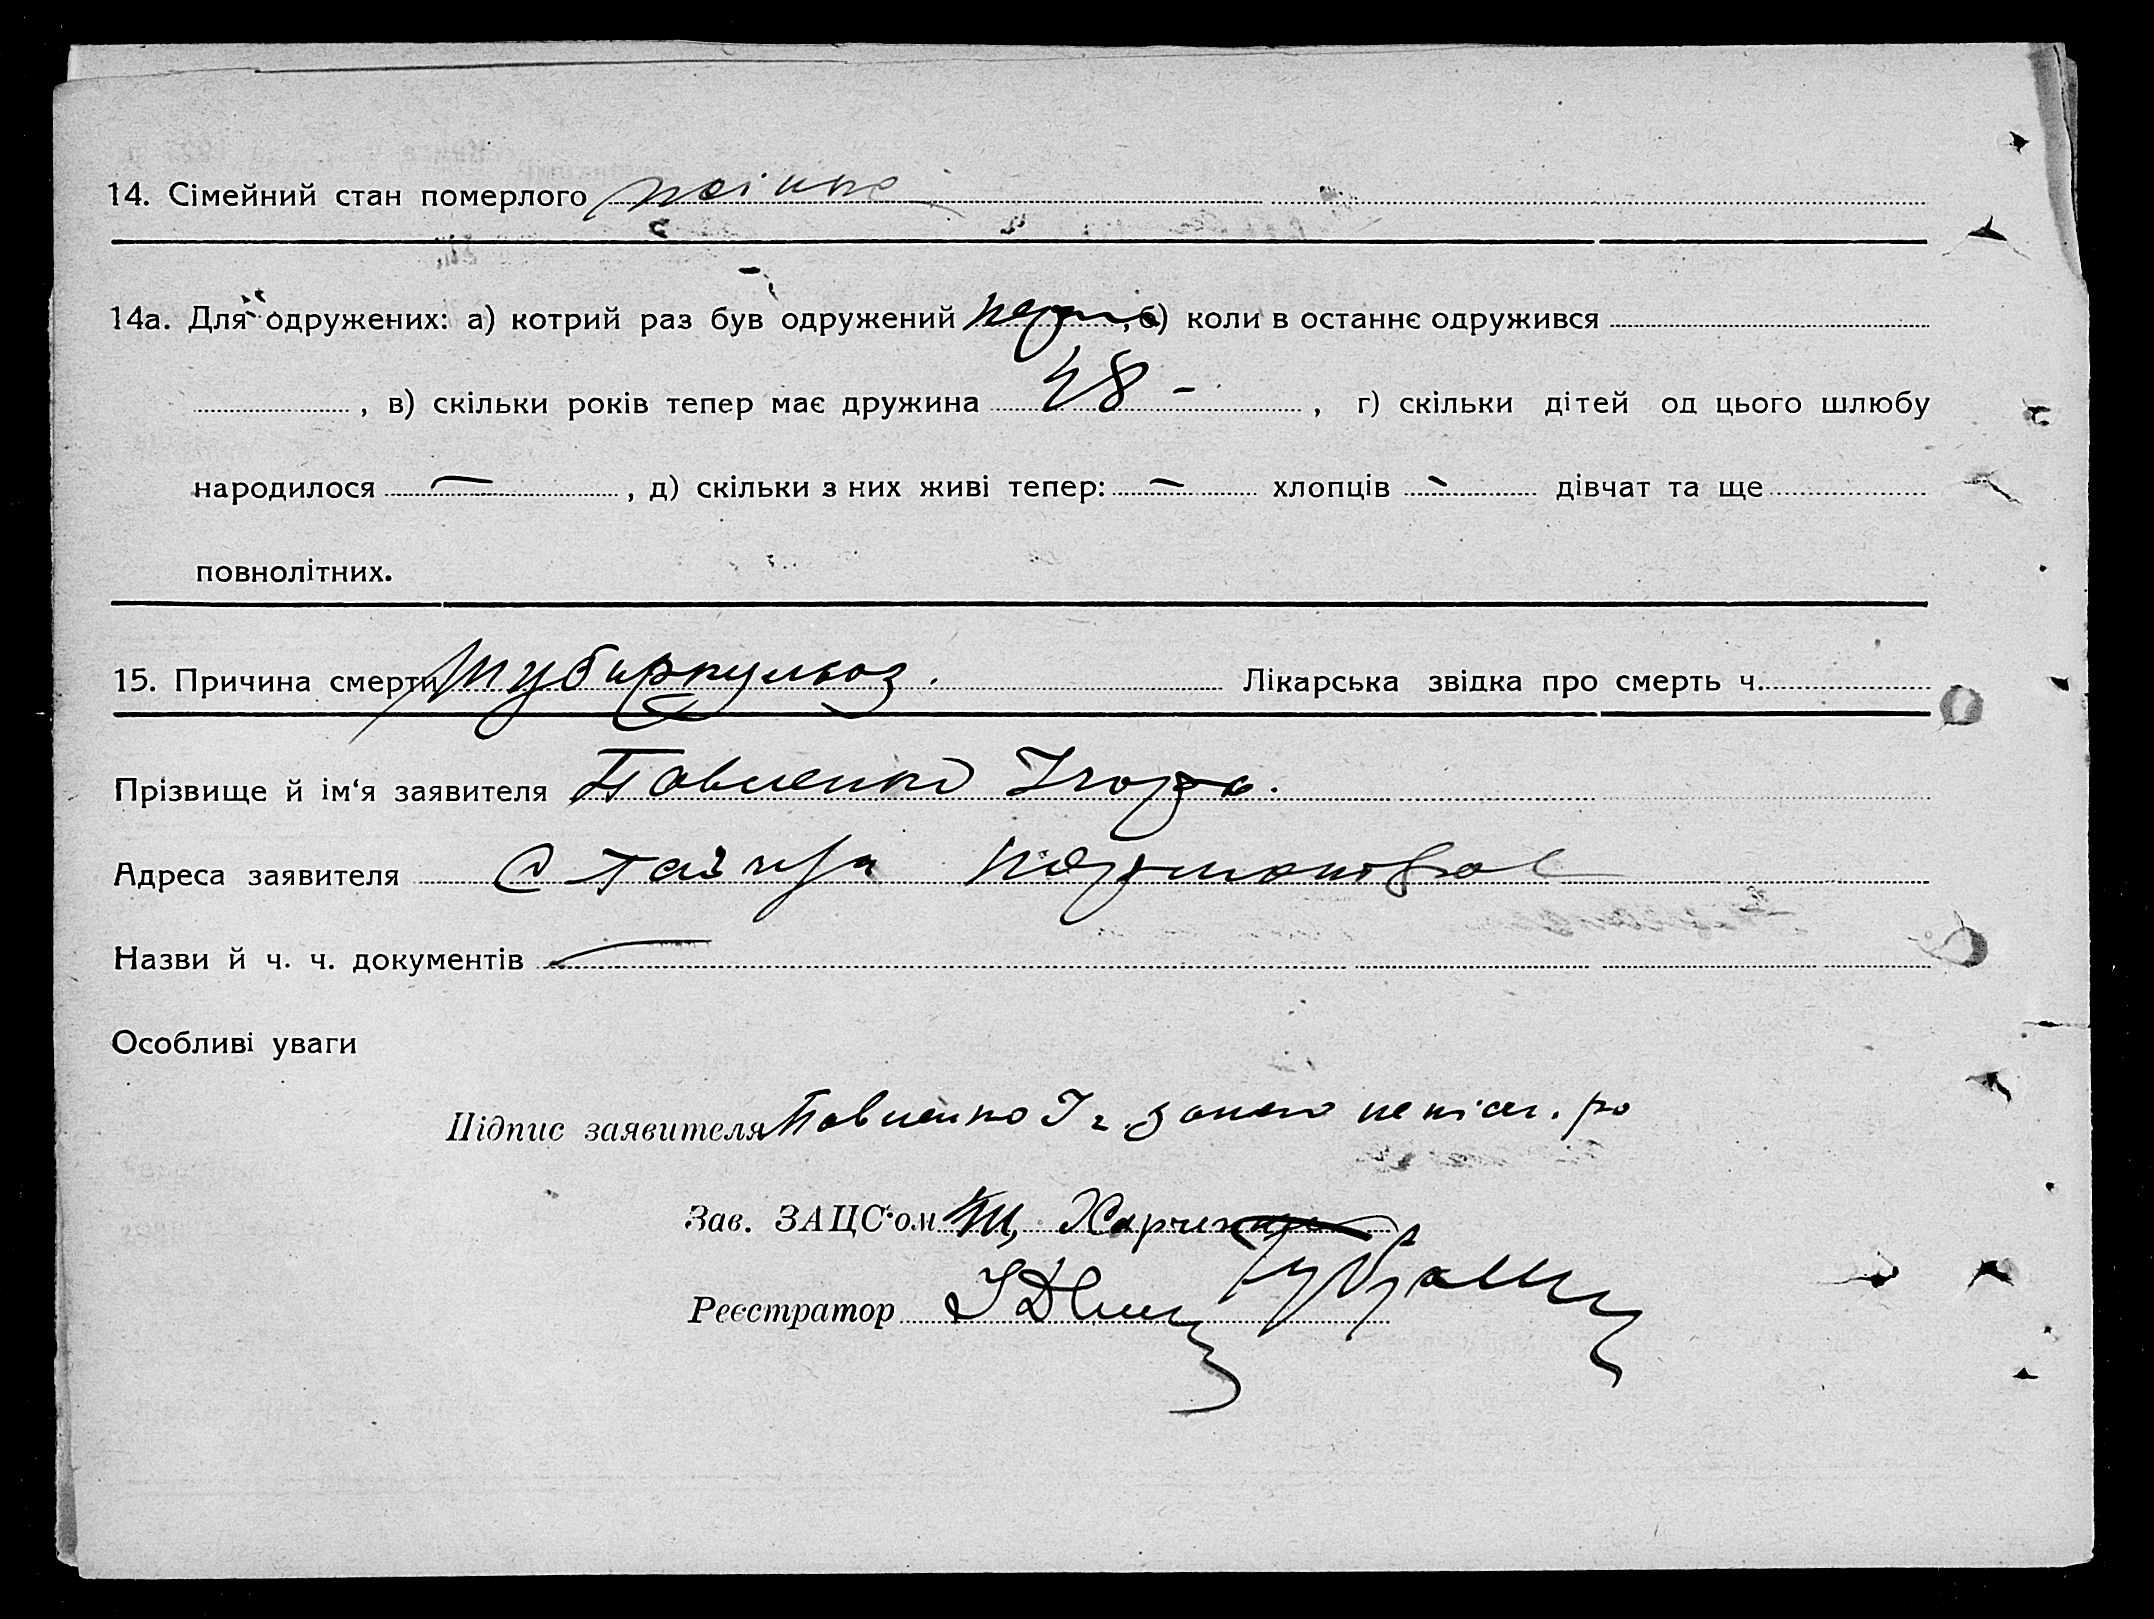 14. Сімейний стан померлого жінка
14а. Для одружених: а) котрий раз був одружений перш, б) коли в останнє одружився
, в) скільки років тепер має дружина 48 – , г) скільки дітей од цього шлюбу
народилося — , д) скільки з них живі тепер: – хлопців - дівчат та ще
повнолітних.
15. Причина смерти туберкульоз. Лікарська звідка про смерть ч.
Прізвище й ім‘я заявителя Павленко Ігорь.
Адреса заявителя
Назви й ч. ч. документів —
Особливі уваги
Підпис заявителя Павленко І
Зав. ЗАЦС‘ом
Реєстратор